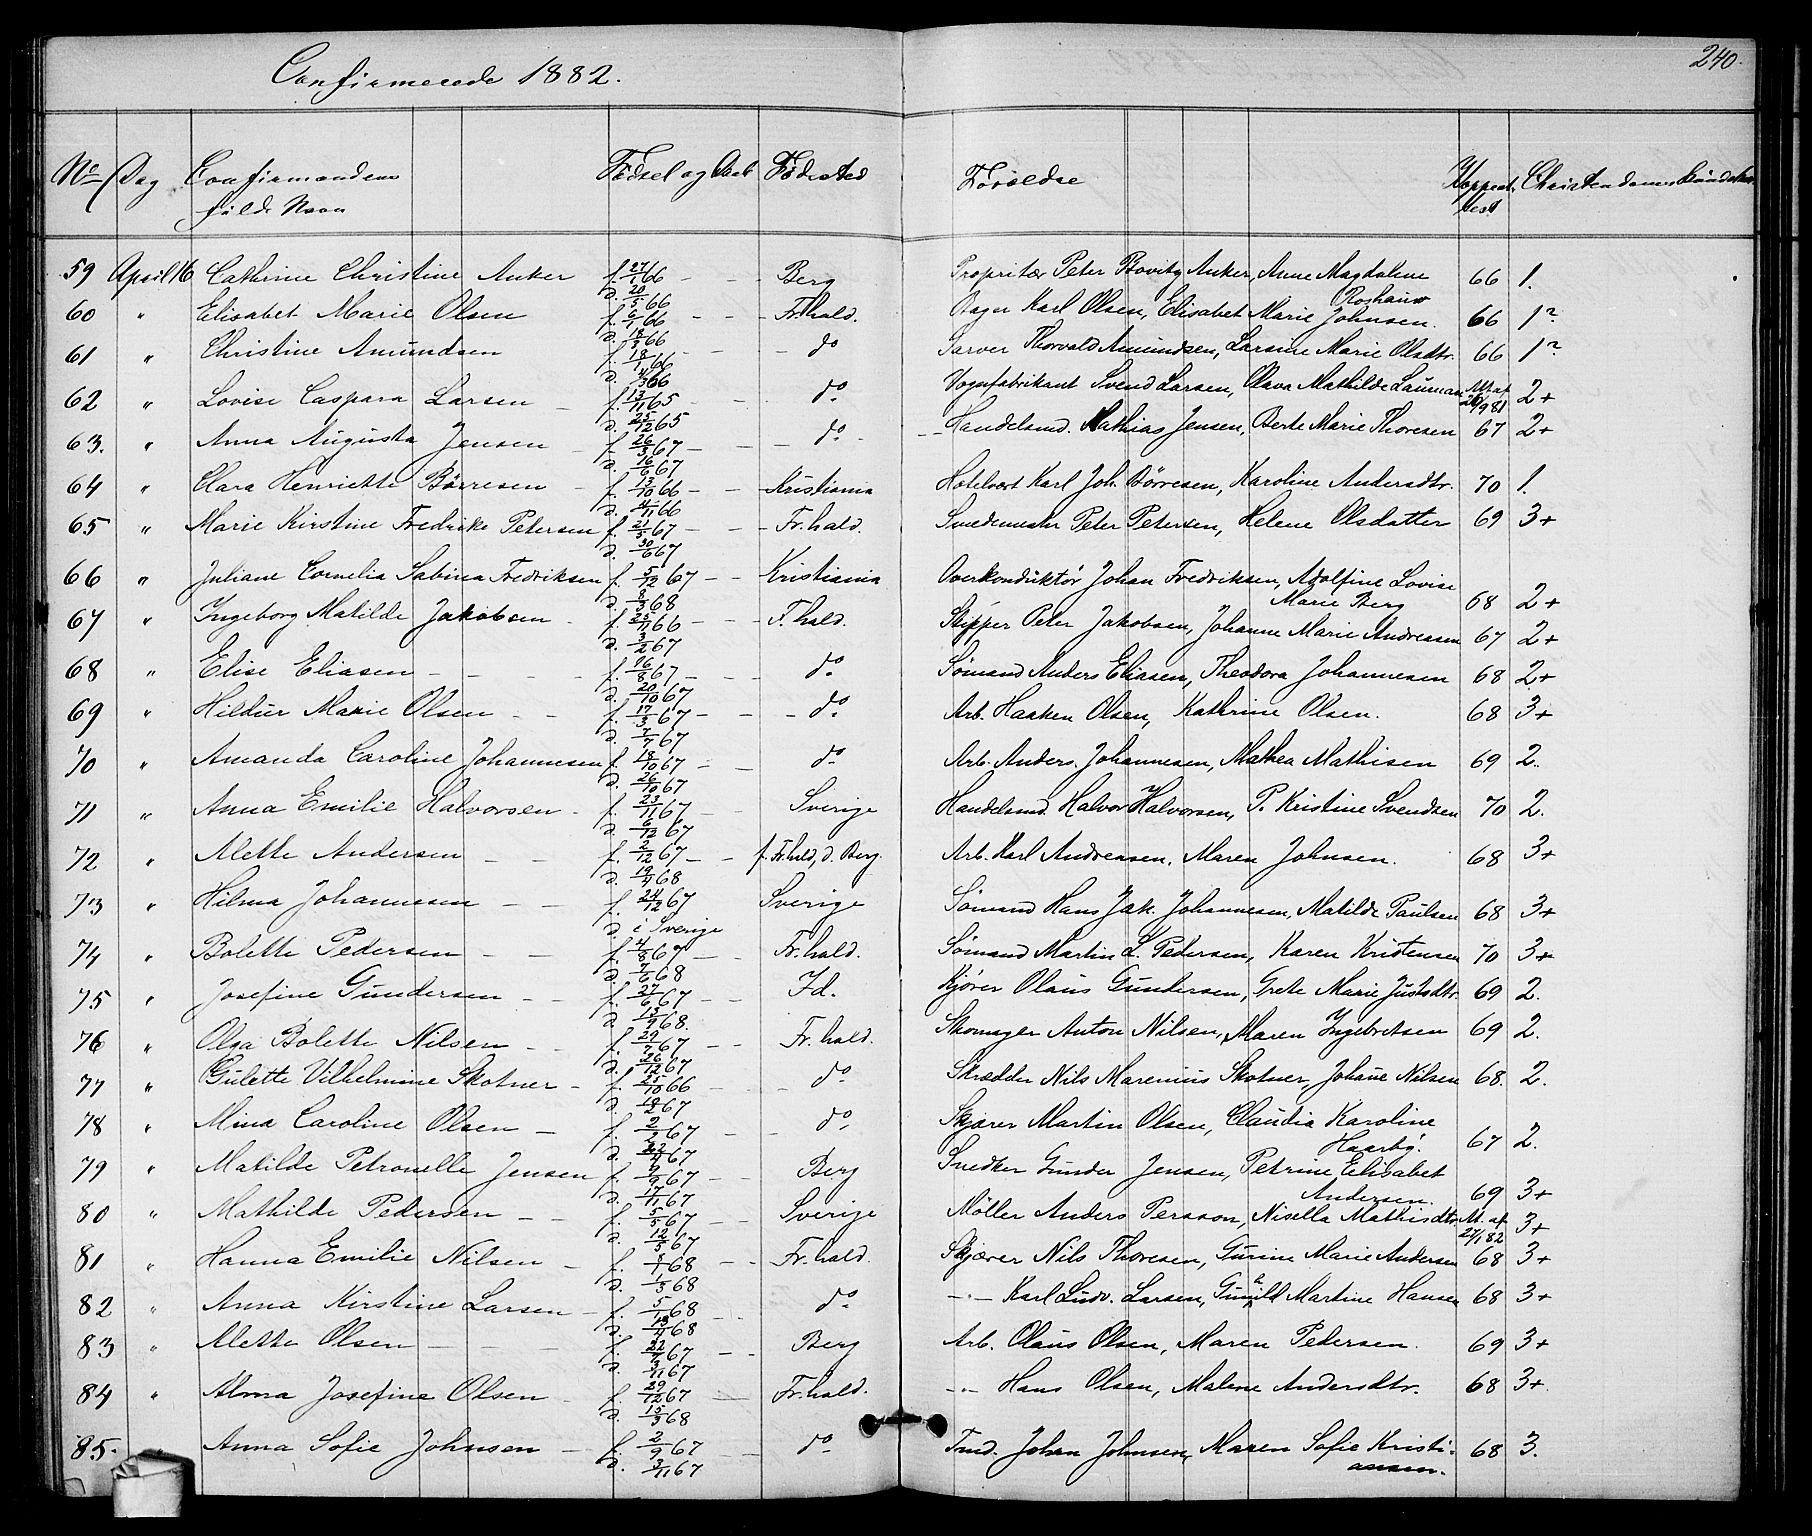 Confirmerede 1882.
240.
No Dag Confirmandens fulde Navn Fødsel og Daab Fødested Forældre Christendomskundskab
59 April 16 Cathrine Christine Anker f. 27/1 66 d. 20/5 66 Berg Propritær Peter Anker, Anne Magdalene 66 1.
60 " Elisabet Marie Olsen f. 6/1 66 d. 18/3 66 Fr.hald. Bager Karl Olsen, Elisabet Marie Johnsen. 66 1
61 " Christine Amundsen f. 18/1 66 d. 4/3 66 do Thorvald Amundsen, Larsine Marie Olsdtr. 66 1
62 " Lovise Caspara Larsen f. 13/11 65 d. 25/12 65 do Vognfabrikant Svend Larsen, Olava Mathilde 2+
63. " Anna Augusta Jensen f. 26/3 67 d. 16/6 67 do Handelsmd. Mathias Jensen, Berte Marie Thoresen 67 2+
64 " Clara Henriette Börresen f. 13/10 66 d. 4/11 66 Kristiania Hotelvært Karl Joh. Börresen, Karoline Andersdtr. 70 1.
65 " Marie Kirstine Fredrike Petersen f. 21/5 67 d. 30/6 67 Fr.hald. Smedemester Peter Petersen, Helene Olsdatter 69 3+
66 " Juliane Cornelia Sabina Fredriksen f. 5/12 67 d. 8/3 68 Kristiania Overkonduktør Johan Fredriksen, Adolfine Lovise
Marie Berg 68 2+
67 " Ingeborg Matilde Jakobsen f. 25/11 66 d. 3/2 67 F.hald. Skipper Peter Jakobsen, Johanne Marie Andreasen 67 2+
68 " Elise Eliasen f. 16/8 67 d. 20/10 67 do Sømand Anders Eliasen, Theodora Johannesen 68 2+
69 " Hildur Marie Olsen f. 17/3 67 d. 7/7 67 do Arb. Haaken Olsen, Kathrine Olsen. 68 3+
70 " Amanda Caroline Johannesen f. 18/10 67 d. 26/10 67 do Arb. Anders. Johannesen, Mathea Mathisen 69 2.
71 " Anna Emilie Halvorsen f. 23/11 67 d. 6/12 67 Sverige Handelsmd. Halvor Halvorsen, P. Kristine Svendsen 70 2.
72 " Alette Andersen f. 2/12 67 d. 19/4 68 f. Fr.hld, d. Berg. Arb. Karl Andreasen, Maren Johnsen. 68 3+
73 " Hilma Johannesen f. 24/12 67 d. i Sverige Sverige Sømand Hans Jak. Johannesen, Matilde Paulsen 68 3+
74 " Bolette Pedersen f. 4/8 67 d. 7/6 68 Fr.hald. Sømand Martin L. Pedersen, Karen Kristensen 70 3+
75 " Josefine Gundersen f. 27/6 67 d. 13/9 68. Id. Kjører Olaus Gundersen, Grete Marie Justsdtr. 69 2.
76 " Olga Bolette Nilsen f. 29/7 67 d. 26/12 67 Fr.hald. Skomager Anton Nilsen, Maren Ingebretsen 69 2.
77 " Gulette Vilhelmine Skotner f. 25/10 66 d. 10/2 67 do Skrædder Nils Marenius Skotner, Johane Nilsen 68. 2.
78 " Mina Caroline Olsen f. 2/2 67 d. 22/4 67 do Skjærer Martin Olsen, Claudia Karoline
Haarby. 67 2.
79 " Matilde Petronelle Jensen f. 9/9 67 d. 17/11 67 Berg Snedker Gunder Jensen, Petrine Elisabet
Andersen. 69 3+
80 " Mathilde Pedersen f. 5/5 67 d. 12/5 67 Sverige Möller Anders Persson, Nisella Mathisdtr. At. af 27/1 82 3+
81 " Hanna Emilie Nilsen f. 8/1 68 d. 1/3 68 Fr.hald. Skjærer Nils Thoresen, Gurine Marie Andersen 68 3+
82 " Anna Kirstine Larsen f. 5/1 68 d. 13/4 68 do -"- Karl Ludv. Larsen, Gunild Martine Hansen 68 3+
83 " Alette Olsen f. 22/7 67 d. 3/11 67 Berg Arb. Olaus Olsen, Maren Pedersen. 69 3+
84 " Alma Josefine Olsen f. 29/12 67 d. 15/3 68 Fr.hald. -"- Hans Olsen, Malene Andersdtr. 68 3+.
85. Anna Sofie Johnsen f. 2/9 67 d. 3/11 67 do Tmd. Johan Johnsen, Maren Sofie Kristi-
ansen. 68 3.